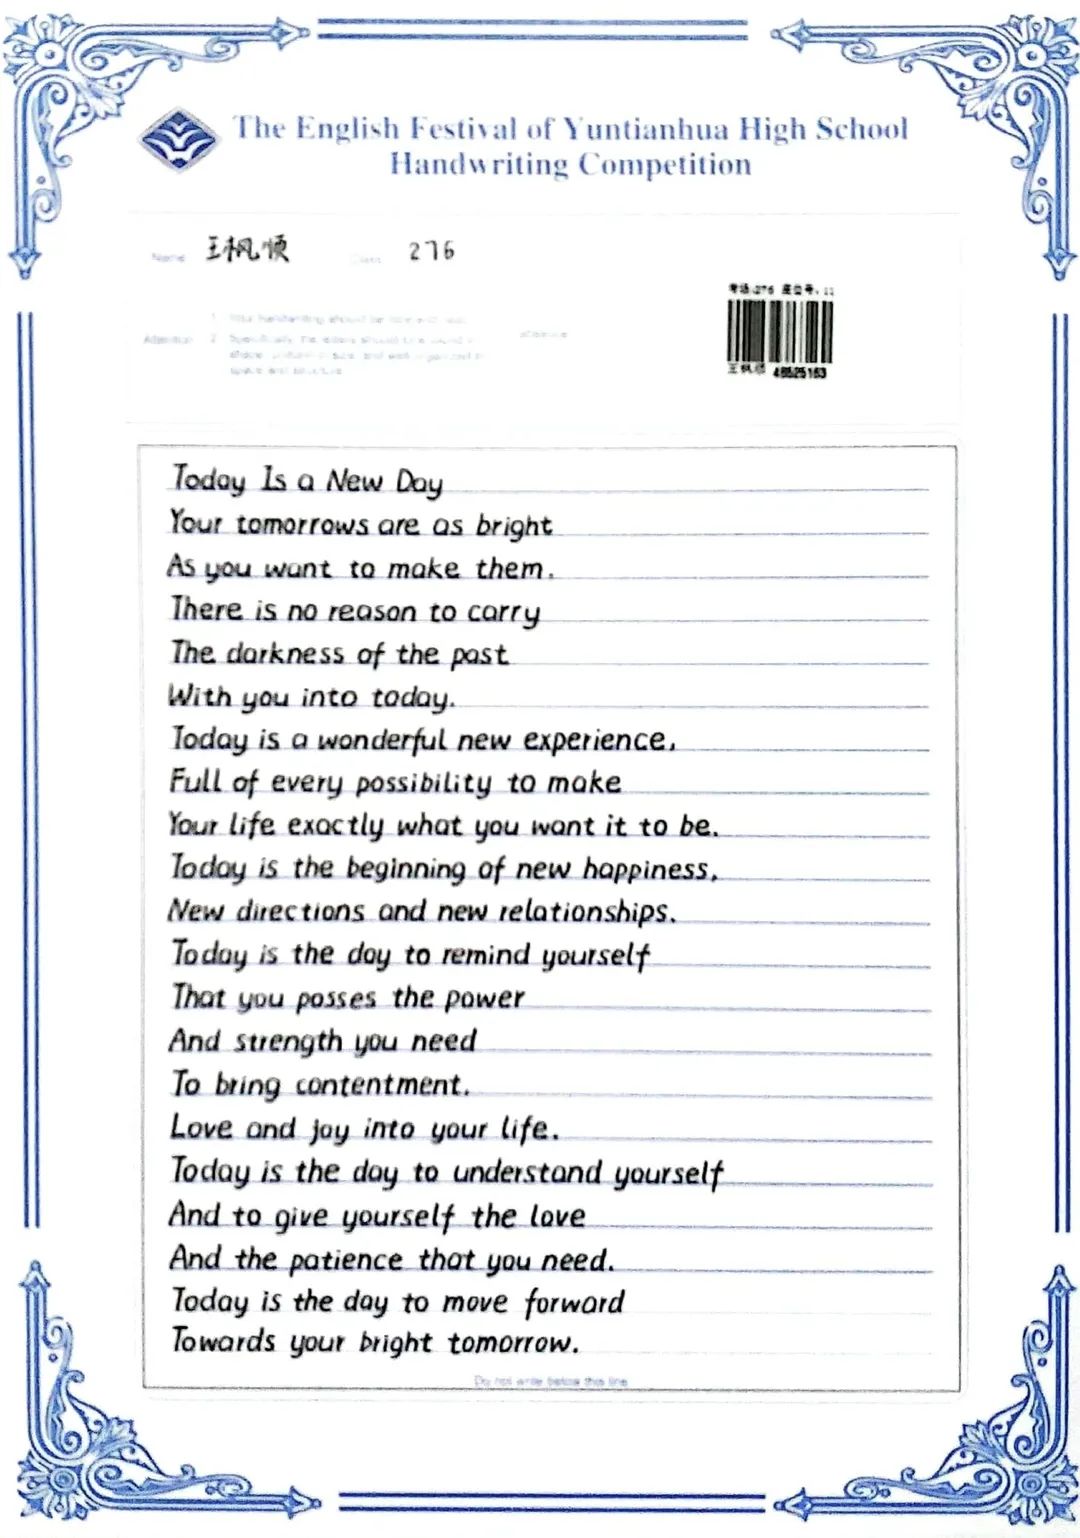 The English Festival of Yuntianhua High School
Handwriting Competition
Name 王枫顺 Class 276
考场:276 座位号:11
王枫顺 48525163
Attention
Today Is a New Day
Your tomorrows are as bright
As you want to make them.
There is no reason to carry
The darkness of the past
With you into today.
Today is a wonderful new experience,
Full of every possibility to make
Your life exactly what you want it to be.
Today is the beginning of new happiness,
New directions and new relationships.
Today is the day to remind yourself
That you posses the power
And strength you need
To bring contentment.
Love and joy into your life.
Today is the day to understand yourself
And to give yourself the love
And the patience that you need.
Today is the day to move forward
Towards your bright tomorrow.
Do not write below this line